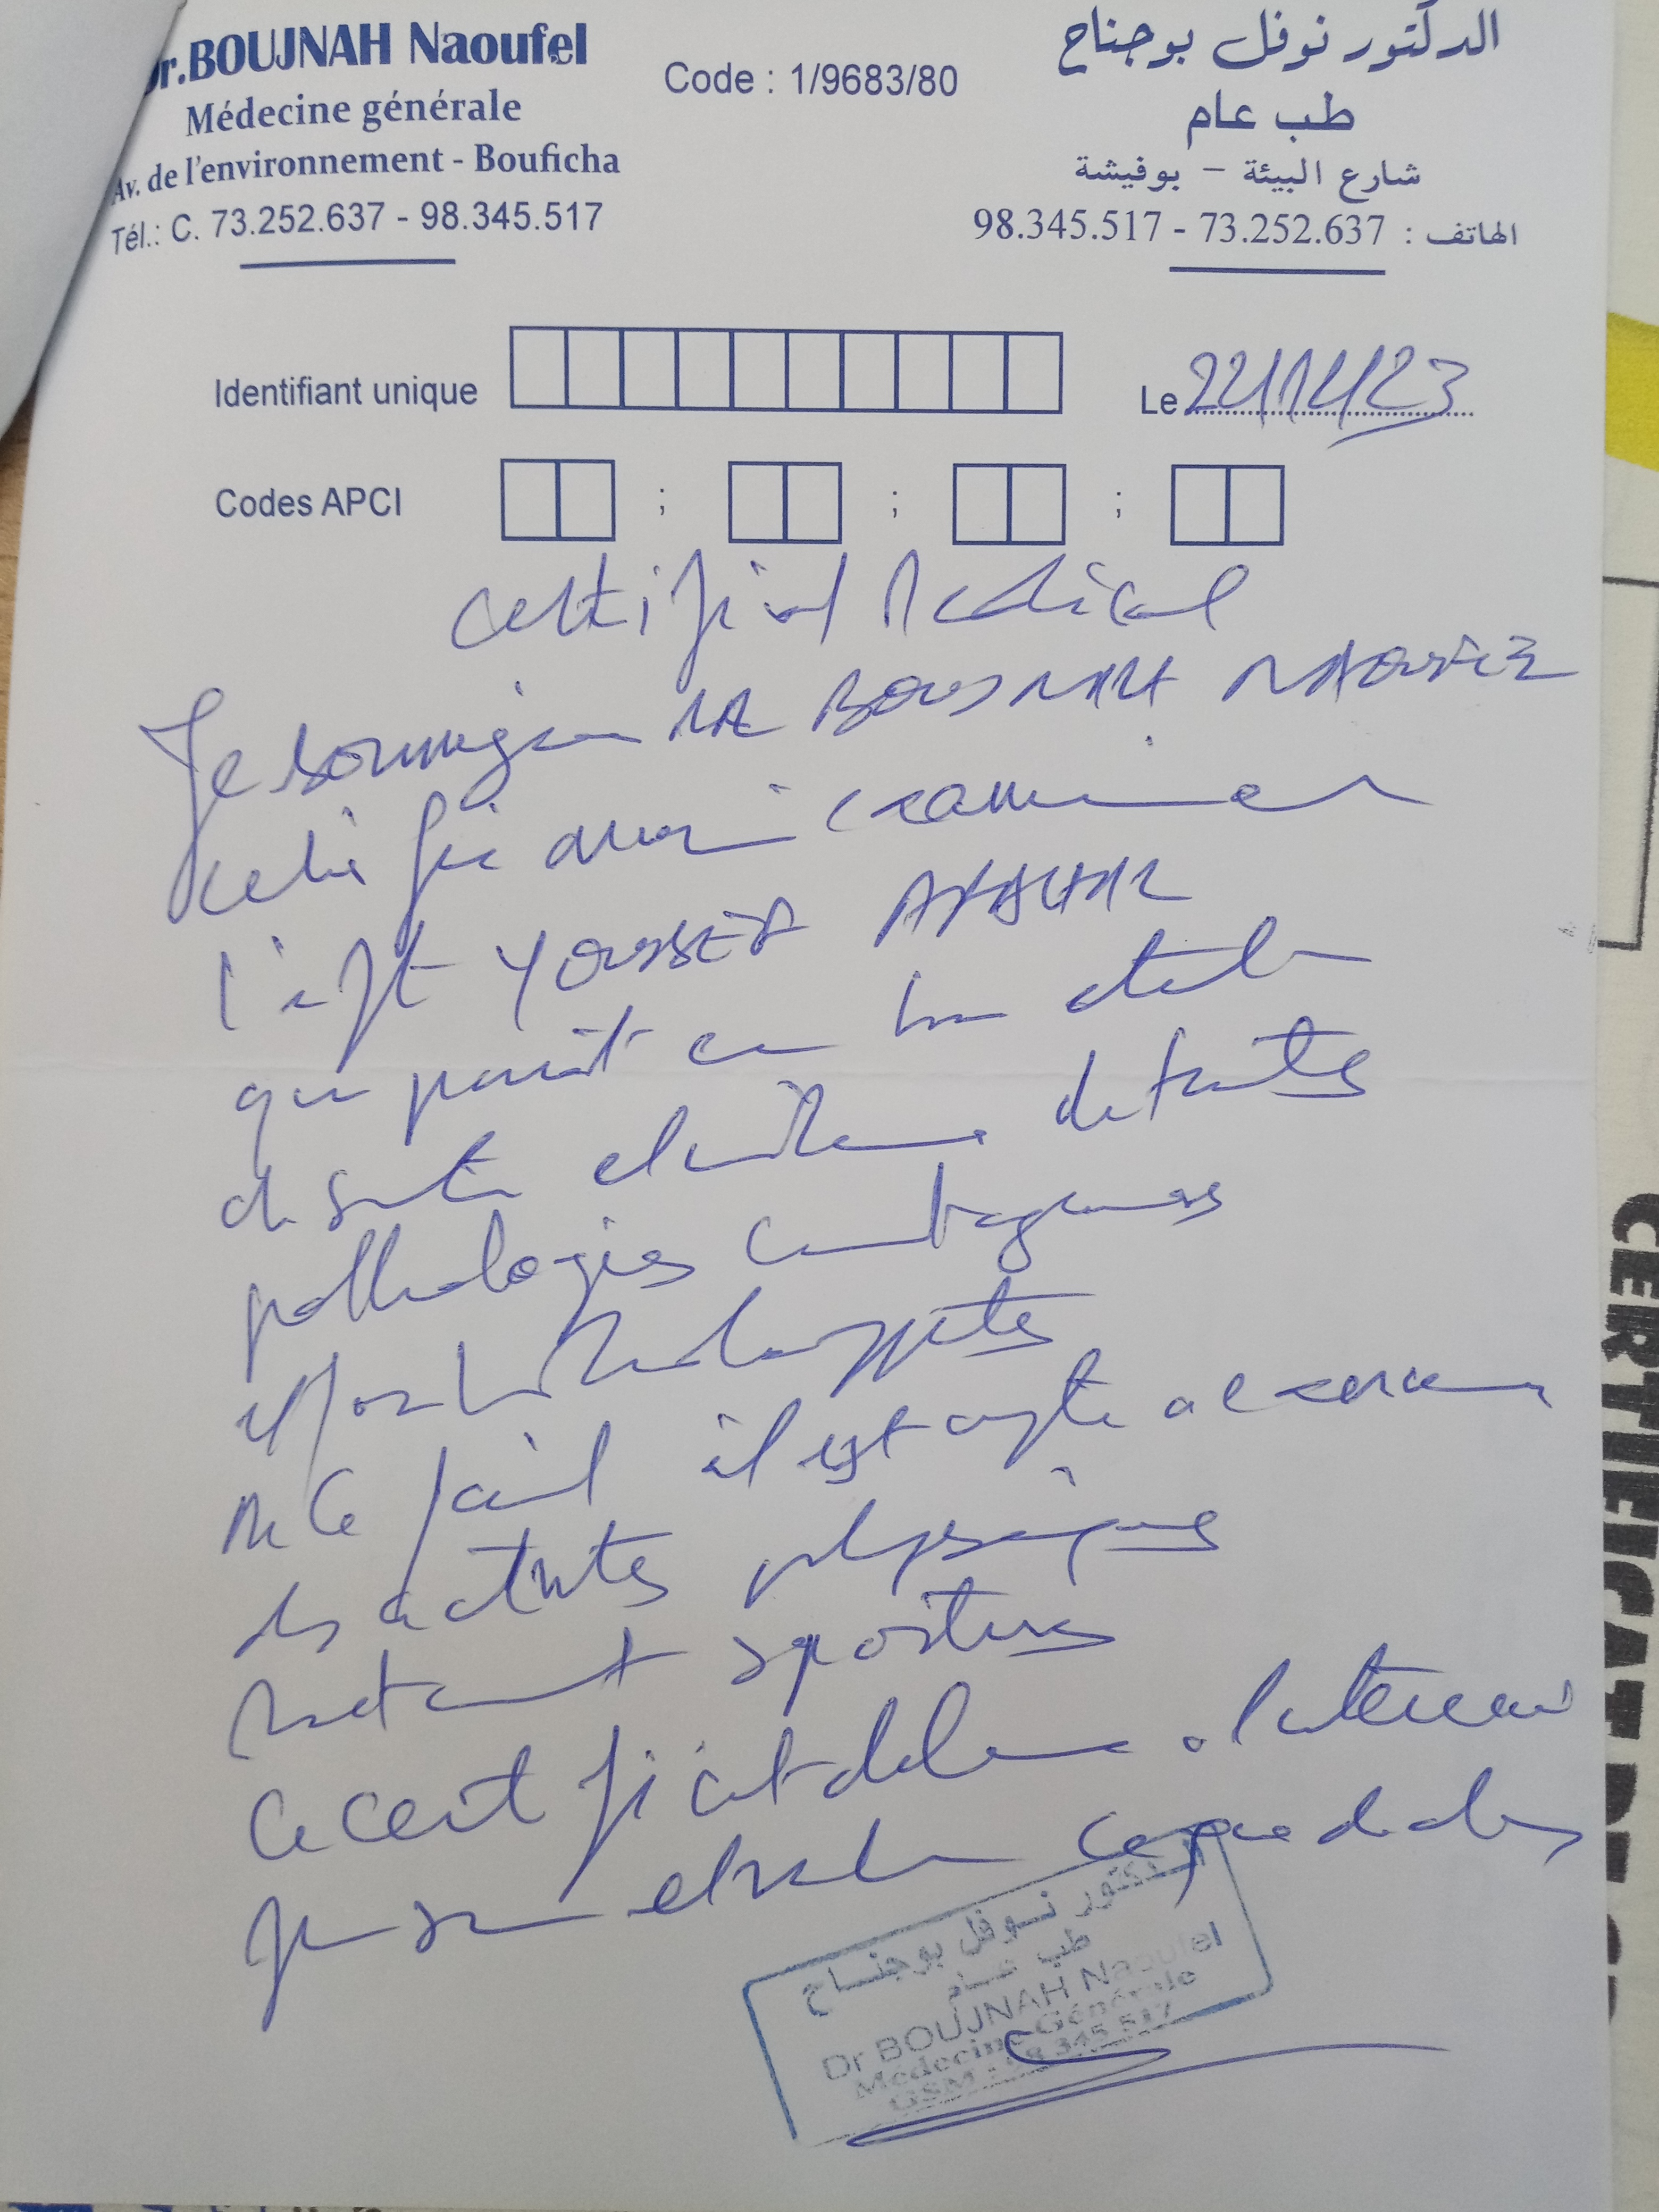 Dr.BOUJNAH Naoufel
Médecine générale
Av. de l'environnement - Bouficha
Tél.: C. 73.252.637 - 98.345.517
Code : 1/9683/80
الدكتور نوفل بوجناح
طب عام
شارع البيئة - بوفيشة
الهاتف : 73.252.637 - 98.345.517
Identifiant unique
Le
Codes APCI ; ; ;
certificat Medical
Je soussigne DR BOUJNAH NAOUFEL
certifie avoir examiner
l'enft YOUSSEF
qui parait en bon etat
de sante et de toutes
pathologies contagieuses
ce jour
il est apte a exercer
les activites physiques
sportives
ce certificat delivre a l'interesse
pour ce que de droit
الدكتور نوفل بوجناح
طب عام
Dr BOUJNAH Naoufel
Médecine Générale
GSM : 98 345 517
CERTIFICAT DE